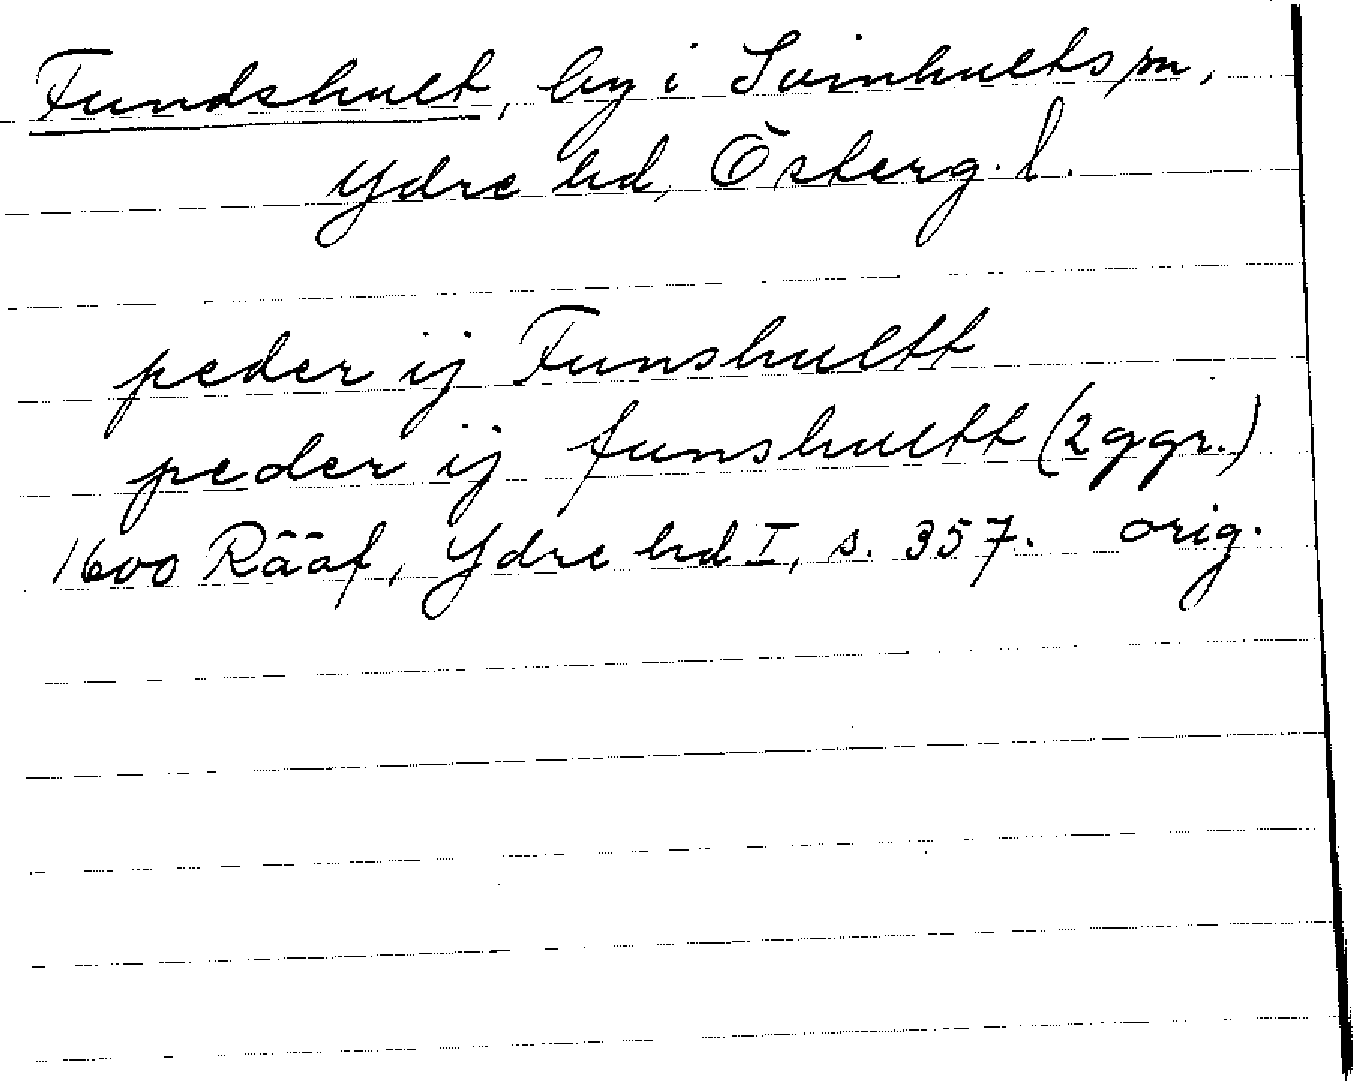 Fundshult, by i Svinhults sn,
Ydre hd, Österg. l.
peder ij Funshultt
peder ij funshultt (2 ggr.)
1600 Rääf, Ydre hd I, s. 357. orig.